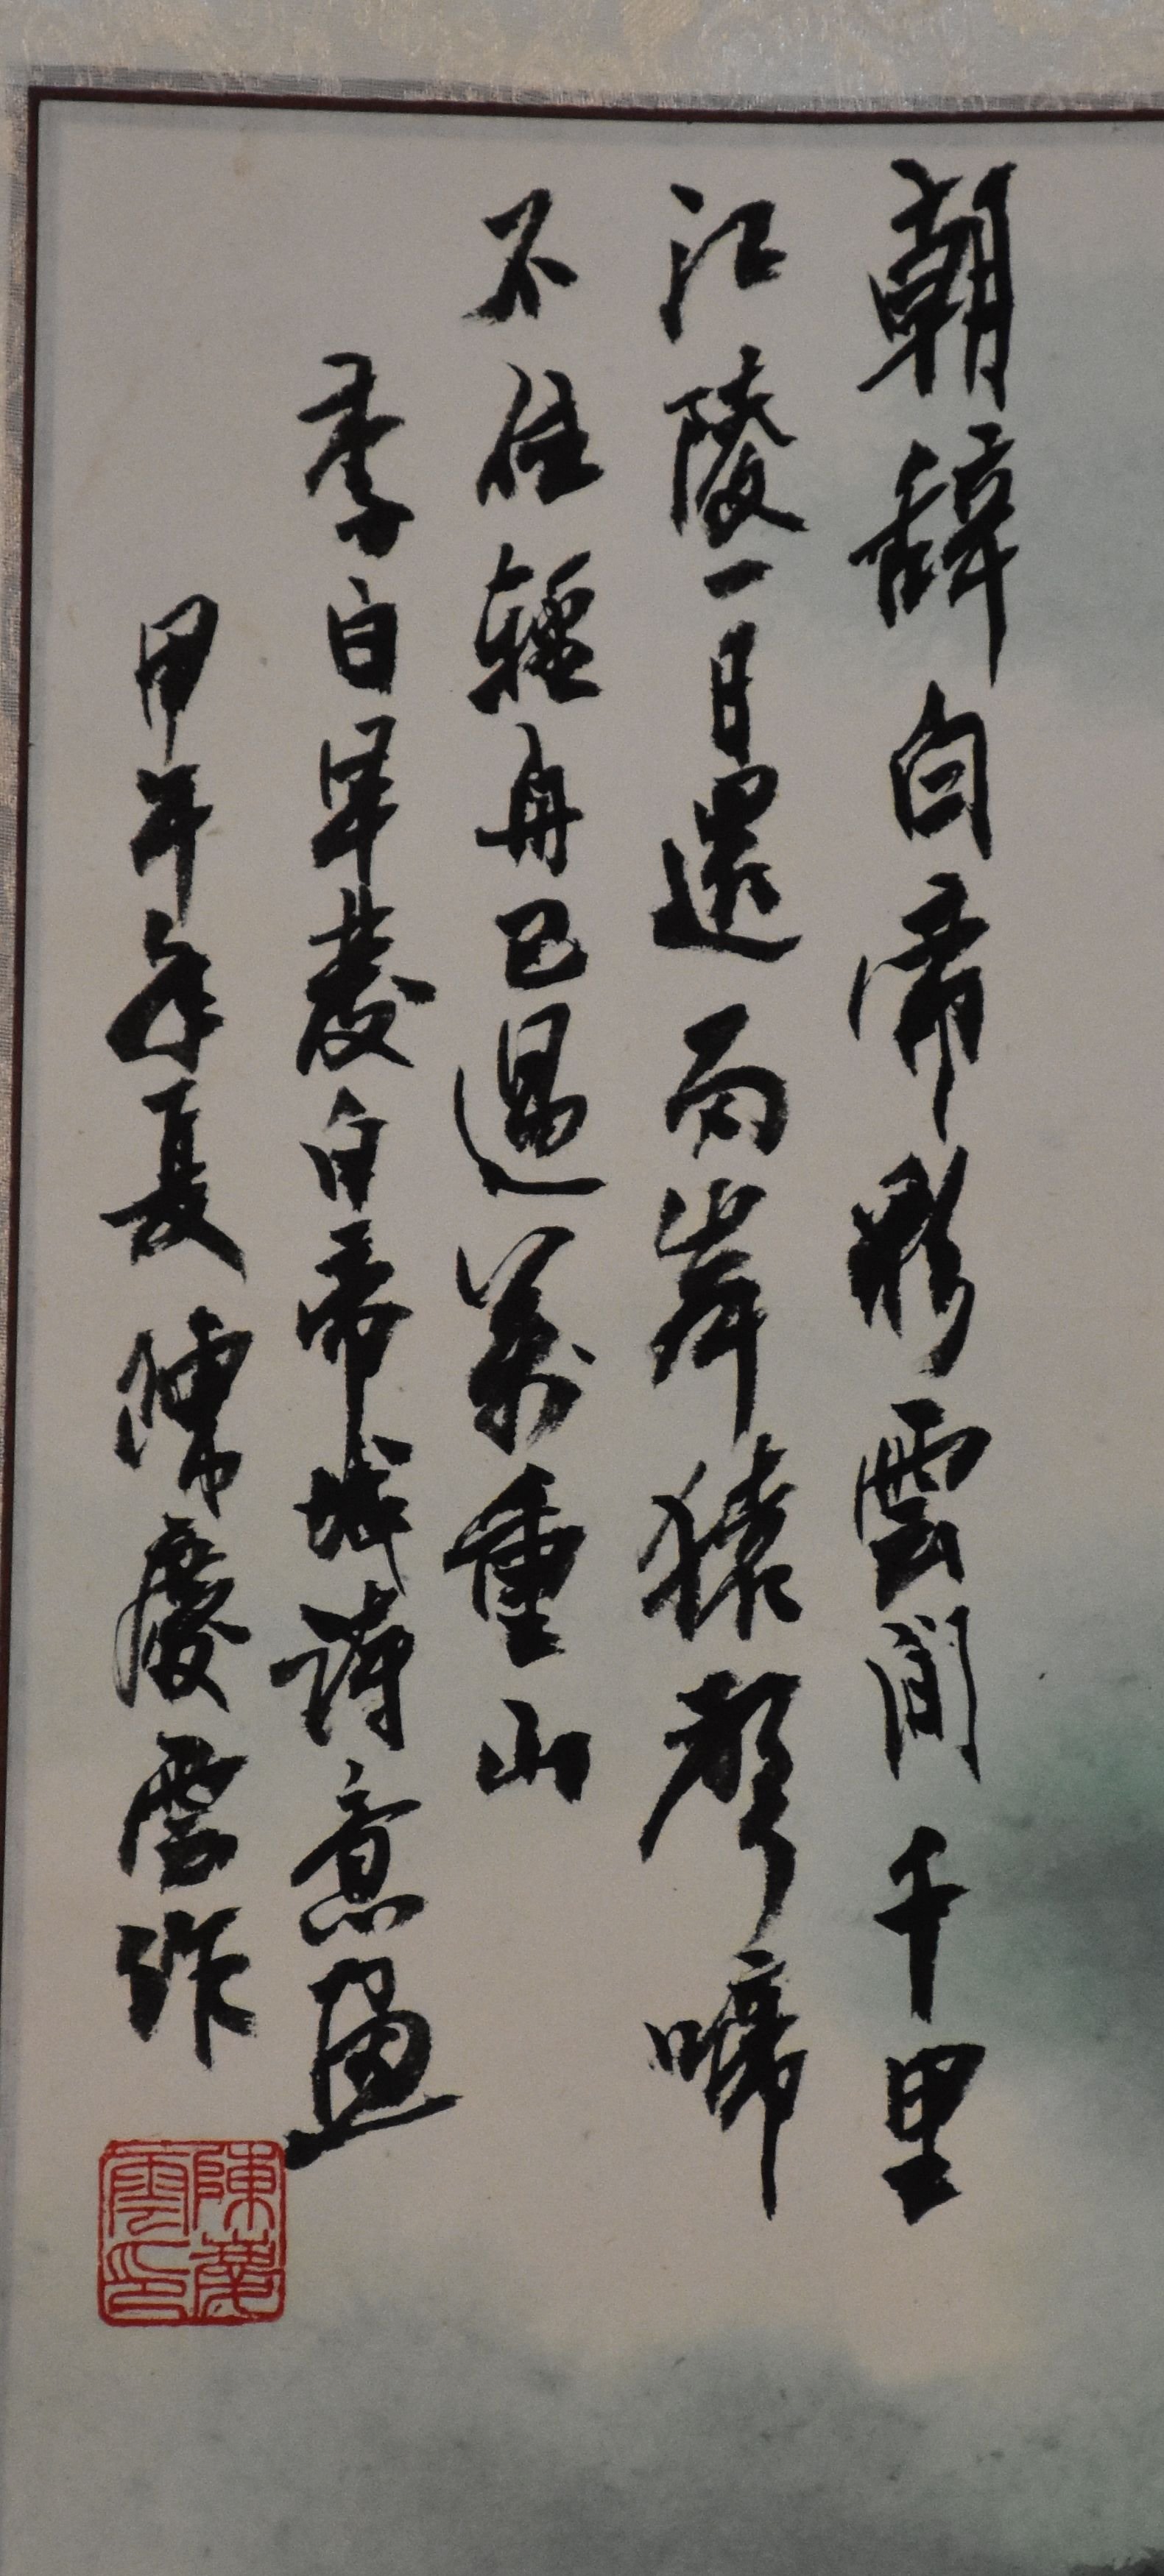 朝辭白帝彩雲間千里
江陵一日還兩岸猿聲啼
不住輕舟已過萬重山
李白早發白帝城詩意畫
甲午年夏陳慶雲作
陳慶
雲印